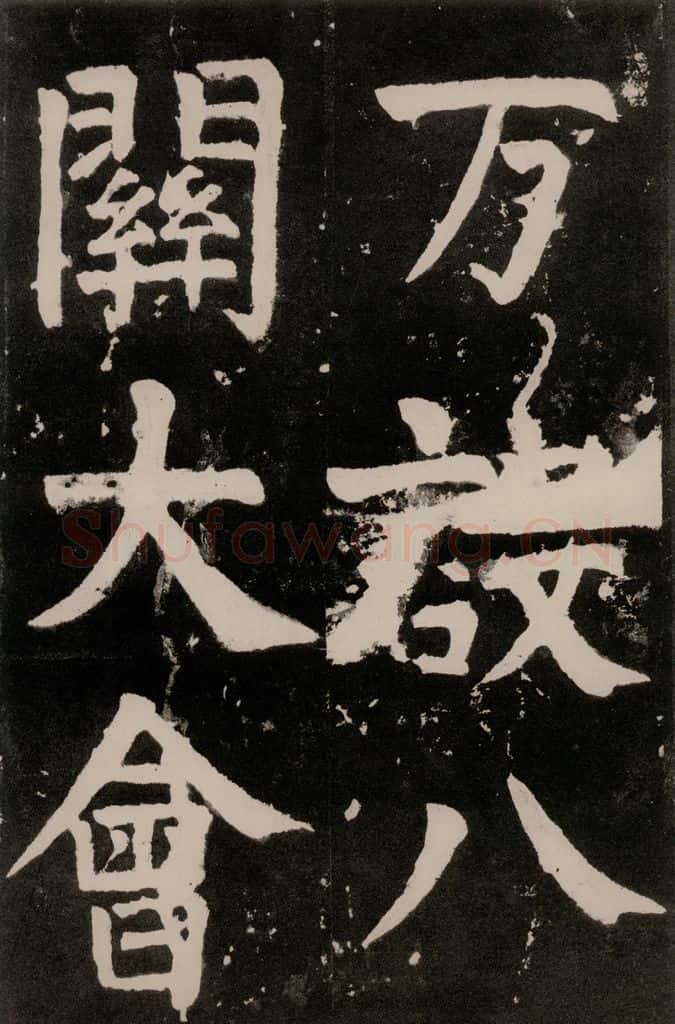 万設八
關大會
Shufawang.CN